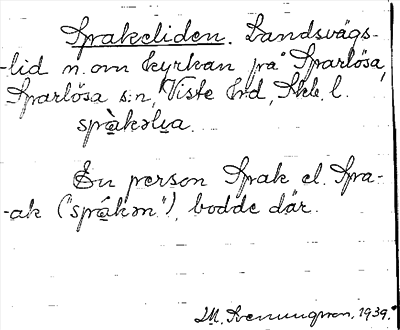 Sprakeliden. Landsvägs-
-lid n. om kyrkan på Sparlösa,
Sparlösa s:n, Viste hd, Skb. l.
språ̀kəlıa.
En person Sprak el. Spra-
-ak ("sprǻkən"), bodde där.
1939.